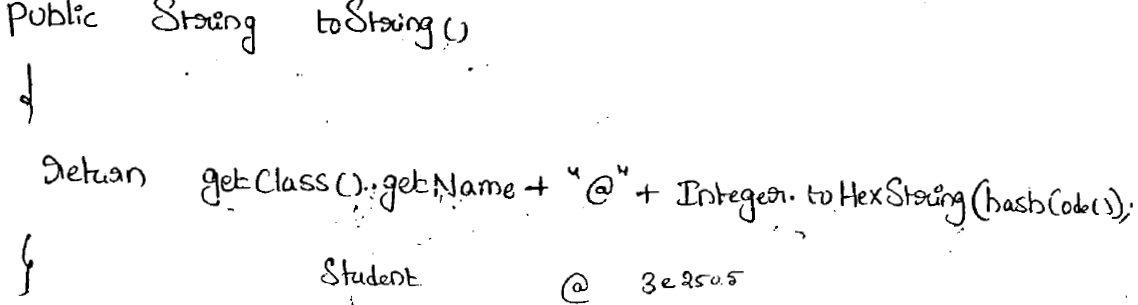 Public String toString()
{
return getClass().getName + "@" + Integer.toHexString(hashCode());
}
Student @ 3e2505